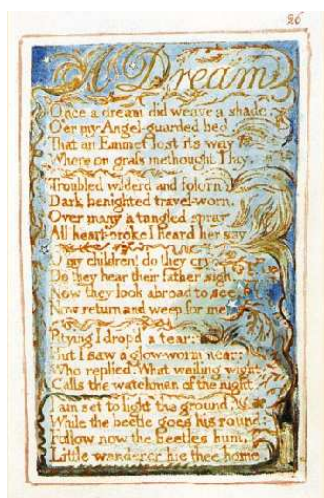 26
A Dream
Once a dream did weave a shade,
O'er my Angel-guarded bed,
That an Emmet lost its way
Where on grass methought I lay.
Troubled wilderd and folorn
Dark benighted travel-worn,
Over many a tangled spray
All heart-broke I heard her say
O my children! do they cry
Do they hear their father sigh
Now they look abroad to see
Now return and weep for me
Pitying I drop'd a tear:
But I saw a glow-worm near:
Who replied. What wailing wight
Calls the watchman of the night
I am set to light the ground,
While the beetle goes his round:
Follow now the beetles hum,
Little wanderer hie thee home